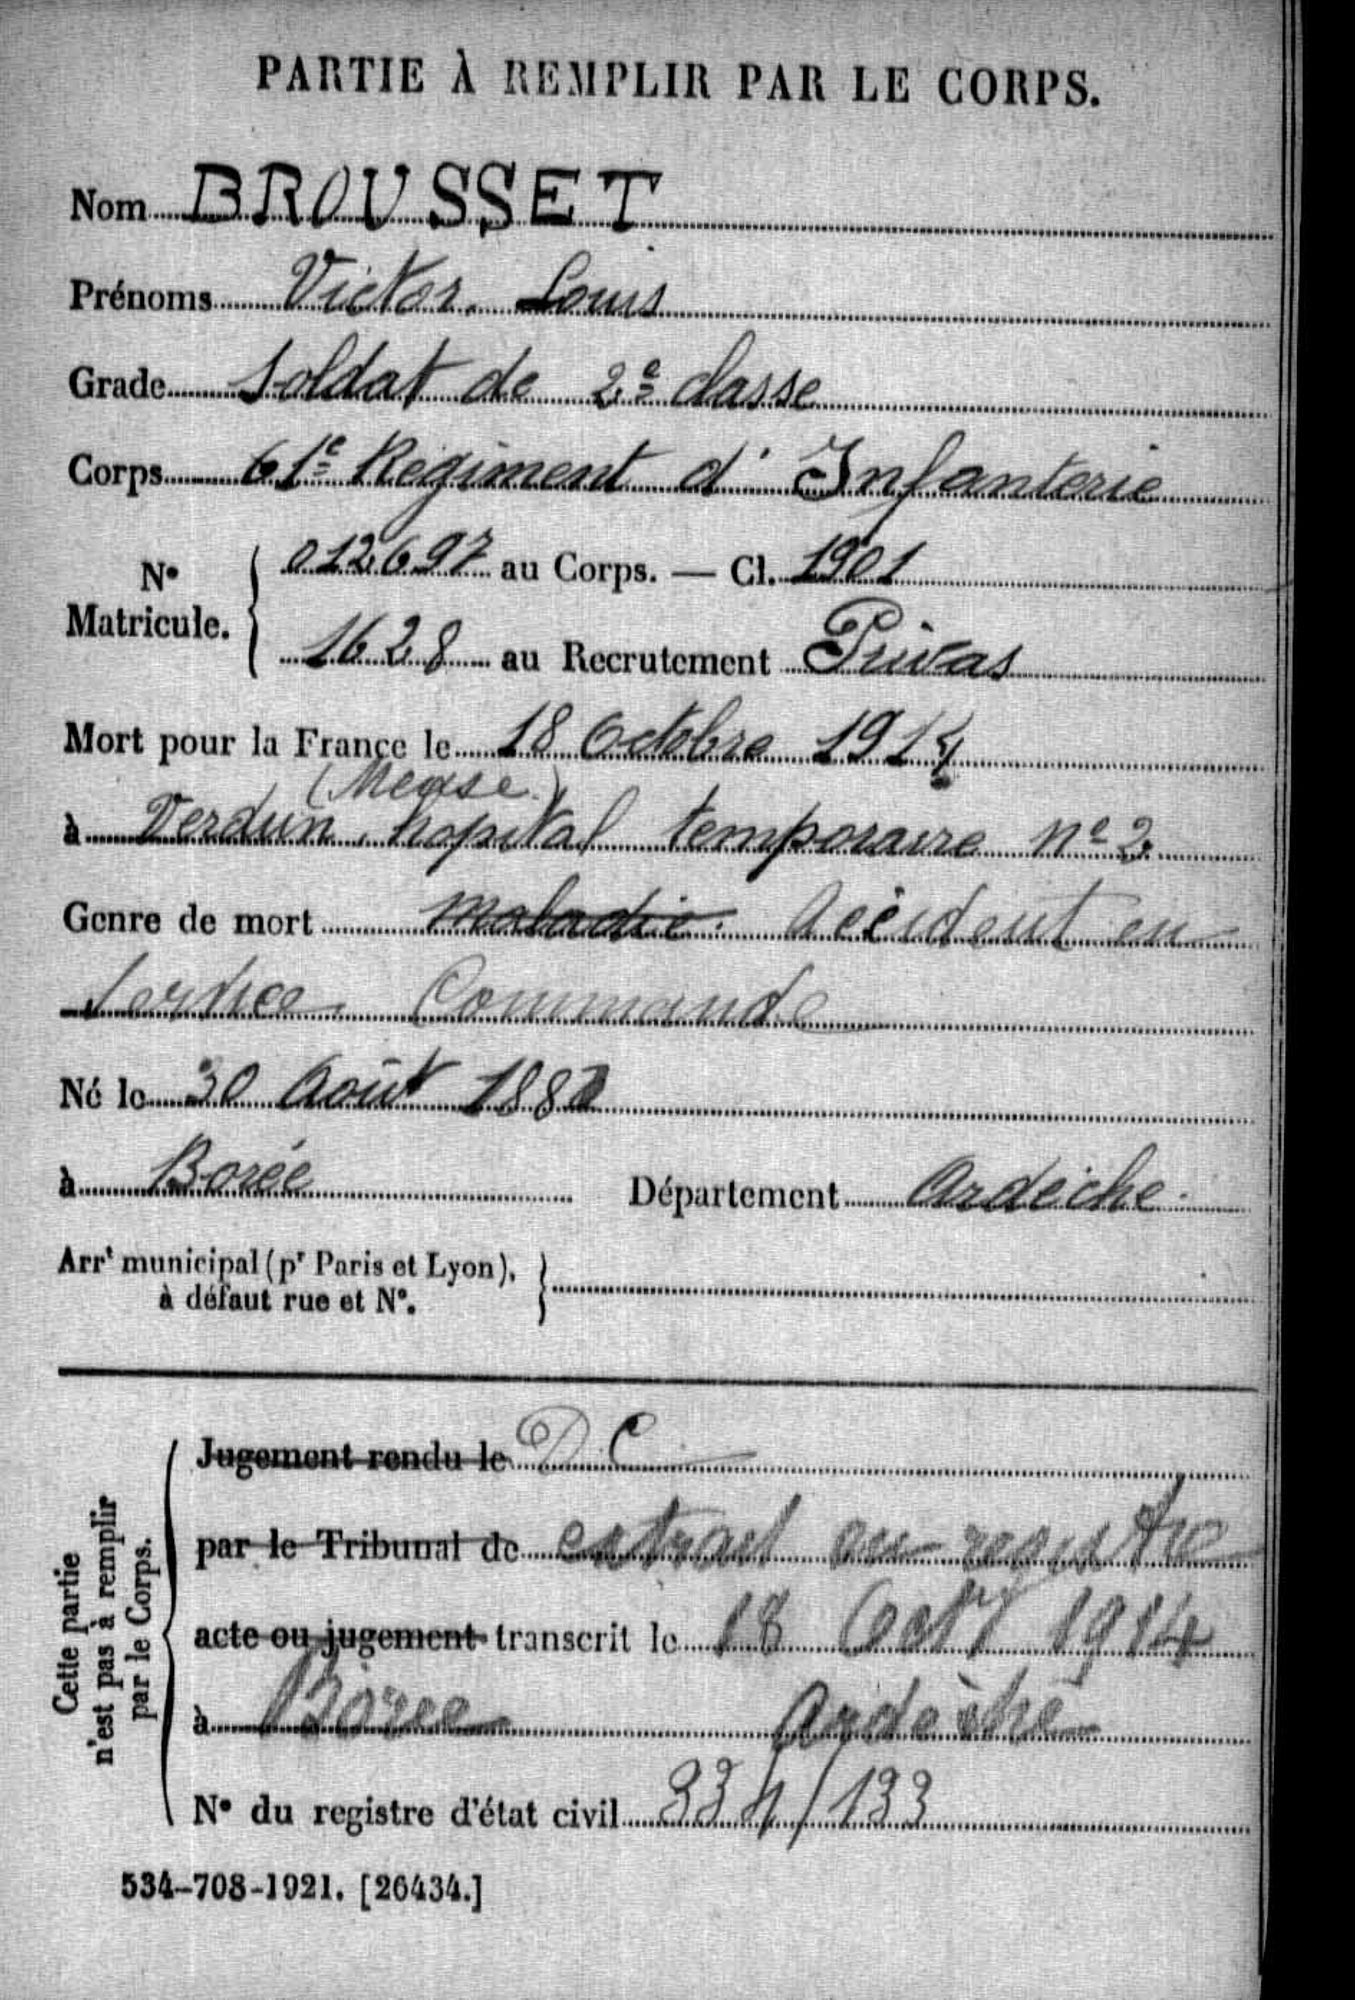 PARTIE À REMPLIR PAR LE CORPS.
Nom BROUSSET
Prénoms Victor Louis
Grade Soldat de 2e classe
Corps 61e Régiment d'Infanterie
N° Matricule. { 012697 au Corps. — Cl. 1901
1628 au Recrutement Privas
Mort pour la France le 18 Octobre 1914
(Meuse)
à Verdun, hopital temporaire n° 2
Genre de mort maladie. Accident en
Service Commandé
Né le 30 Août
à Borée Département Ardèche.
Arrt municipal (pr Paris et Lyon), }
à défaut rue et N°.
Cette partie
n'est pas à remplir
par le Corps.
Jugement rendu le D C
par le Tribunal de extrait au registre
acte ou jugement transcrit le 18 Oct 1914
à Borée Ardèche
N° du registre d'état civil 334/133
534-708-1921. [26434.]